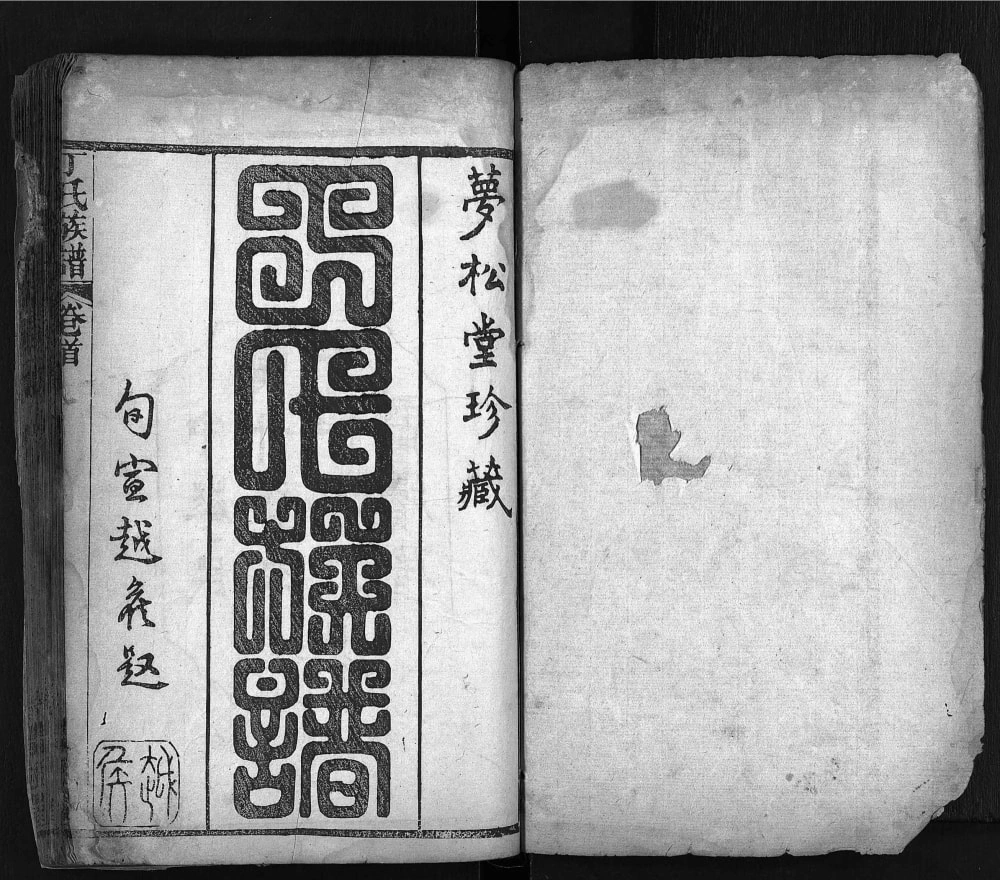 夢松堂珍藏
丁氏族譜
旬宣越矦題
越矦
丁氏族譜 卷首